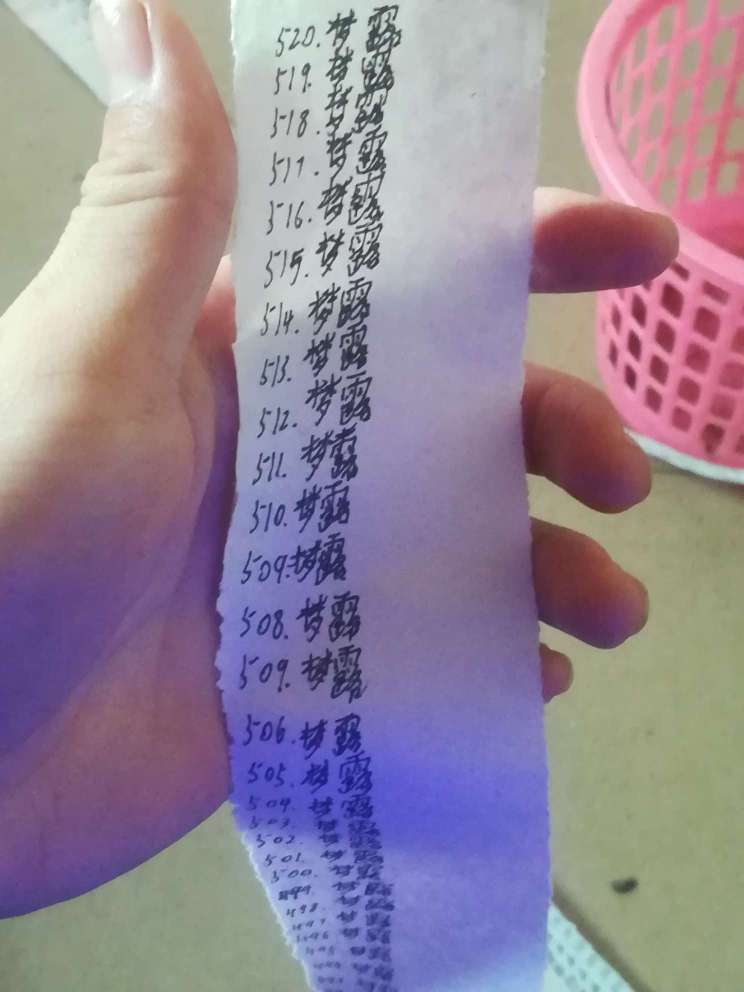 520.梦露
519.梦露
518.梦露
517.梦露
516.梦露
515.梦露
514.梦露
513.梦露
512.梦露
511.梦露
510.梦露
509.梦露
508.梦露
509.梦露
506.梦露
505.梦露
504.梦露
503.梦露
502.梦露
501.梦露
500.梦露
499.梦露
498.梦露
497.梦露
496.梦露